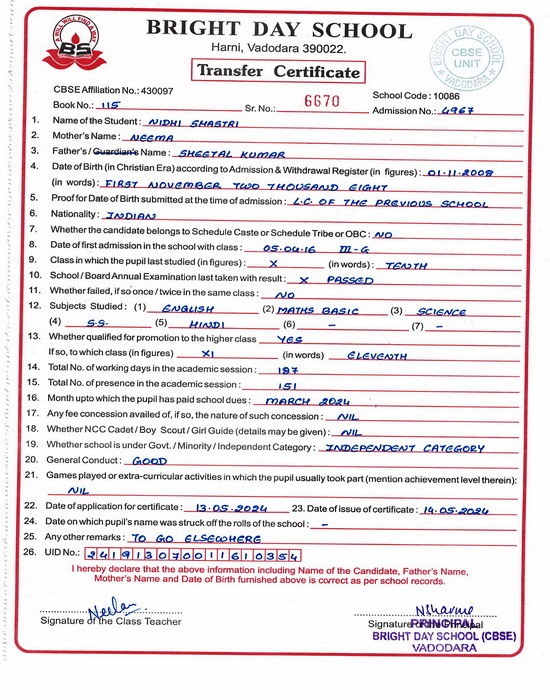 A WILL WILL FIND A WAY
BS
BRIGHT DAY SCHOOL
Harni, Vadodara 390022.
Transfer Certificate
BRIGHT DAY SCHOOL
CBSE
UNIT
VADODARA
CBSE Affiliation No.: 430097 School Code : 10086
Book No.: 115 Sr. No.: 6670 Admission No.: 4967
1. Name of the Student : NIDHI SHASTRI
2. Mother's Name : NEEMA
3. Father's / Guardian's Name : SHEETAL KUMAR
4. Date of Birth (in Christian Era) according to Admission & Withdrawal Register (in figures) : 01.11.2008
(in words) : FIRST NOVEMBER TWO THOUSAND EIGHT
5. Proof for Date of Birth submitted at the time of admission : L.C. OF THE PREVIOUS SCHOOL
6. Nationality : INDIAN
7. Whether the candidate belongs to Schedule Caste or Schedule Tribe or OBC : NO
8. Date of first admission in the school with class : 05.04.16 III-G
9. Class in which the pupil last studied (in figures) : X (in words) : TENTH
10. School / Board Annual Examination last taken with result : X PASSED
11. Whether failed, if so once / twice in the same class : NO
12. Subjects Studied : (1) ENGLISH (2) MATHS BASIC (3) SCIENCE
(4) S.S. (5) HINDI (6) – (7) –
13. Whether qualified for promotion to the higher class YES
If so, to which class (in figures) XI (in words) ELEVENTH
14. Total No. of working days in the academic session : 187
15. Total No. of presence in the academic session : 151
16. Month upto which the pupil has paid school dues : MARCH 2024
17. Any fee concession availed of, if so, the nature of such concession : NIL
18. Whether NCC Cadet / Boy Scout / Girl Guide (details may be given) : NIL
19. Whether school is under Govt. / Minority / Independent Category : INDEPENDENT CATEGORY
20. General Conduct : GOOD
21. Games played or extra-curricular activities in which the pupil usually took part (mention achievement level therein):
NIL
22. Date of application for certificate : 13.05.2024 23. Date of issue of certificate : 14.05.2024
24. Date on which pupil's name was struck off the rolls of the school : –
25. Any other remarks : TO GO ELSEWHERE
26. UID No.: 241913070011610354
I hereby declare that the above information including Name of the Candidate, Father's Name,
Mother's Name and Date of Birth furnished above is correct as per school records.
Neelam
Signature of the Class Teacher Signature of the Principal
PRINCIPAL
BRIGHT DAY SCHOOL (CBSE)
VADODARA